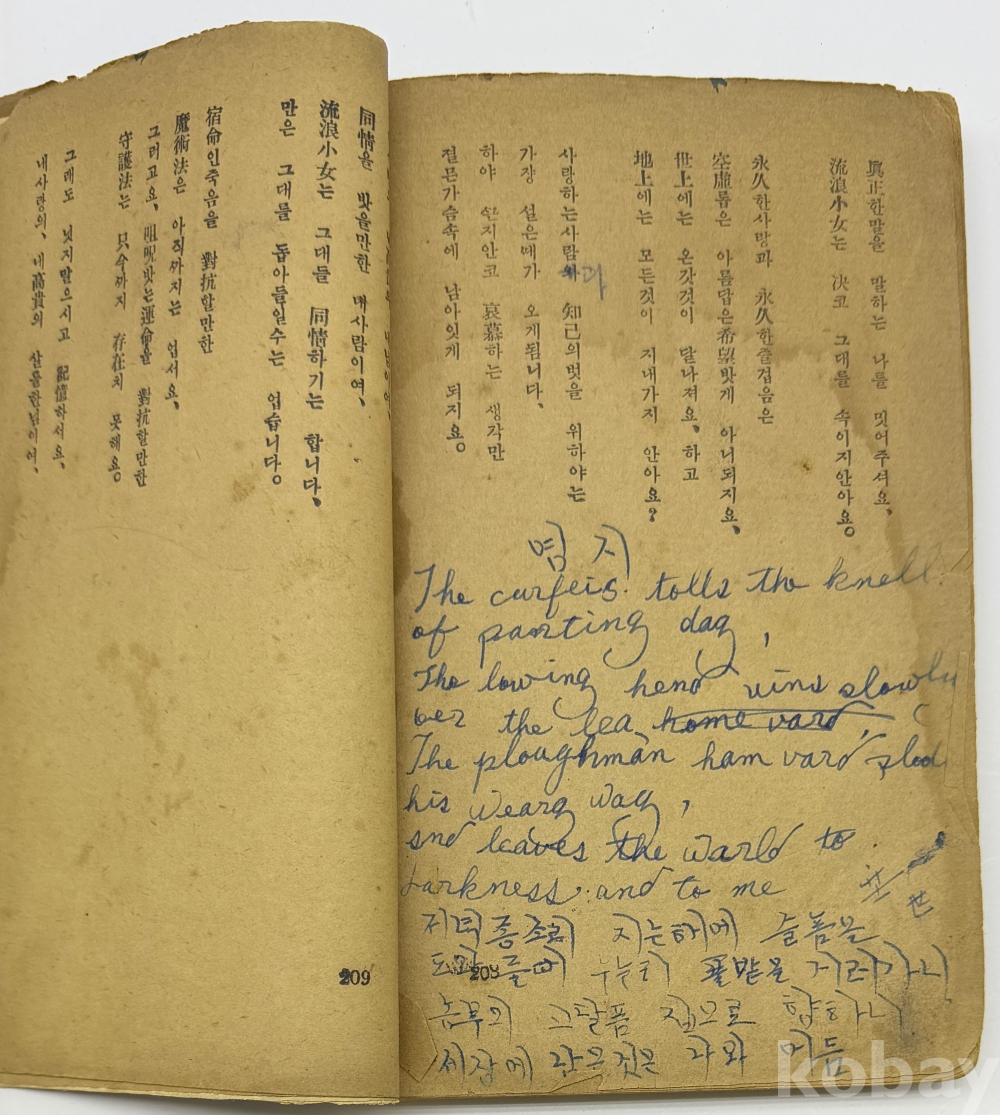 眞正한말을 말하는 나를 밋어주셔요、
流浪小女는 决코 그대를 속이지안아요。
永久한사망과 永久한즐겁음은
空虛롬은 아름답은希望밧게 아니되지요、
世上에는 온갓것이 달나져요、하고
地上에는 모든것이 지내가지 안아요?
사랑하는사람 知己의벗을 위하야는
가장 설은때가 오게됩니다、
하야 쉰지안코 哀慕하는 생각만
절믄가슴속에 남아잇게 되지요。
명지
The curfeis tolls the knell
of parting day,
The lowing herd wins slowly
oer the lea home vard,
The ploughman ham vard plod
his weary way,
and leaves the warld to
darkness and to me
저녁종소리 지는해에 슬픔을
도와 들에 누는히 풀밭을 거러가니
농부의 고달픔 집으로 향하니
세장에 남은것은 나와 어듬
208
同情을 밧을만한 내사람이여、
流浪小女는 그대를 同情하기는 합니다、
만은 그대를 돕아들일수는 업습니다。
宿命인죽음을 對抗할만한
魔術法은 아직까지는 업서요、
그러고요、咀呪밧는運命을 對抗할만한
守護法는 只今까지 存在치 못해요。
그래도 닛지말으시고 記憶하서요、
내사랑의、내高貴의 살틀한님이여、
209
kobay